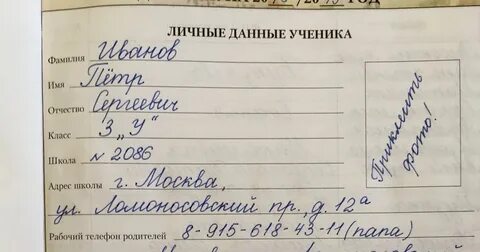 ЛИЧНЫЕ ДАННЫЕ УЧЕНИКА
Фамилия Иванов
Имя Пётр
Отчество Сергеевич
Класс 3 „У"
Школа № 2086
Адрес школы г. Москва,
ул. Ломоносовский пр., д. 12а
Рабочий телефон родителей 8-915-618-43-11 (папа)
Приклеить
фото!